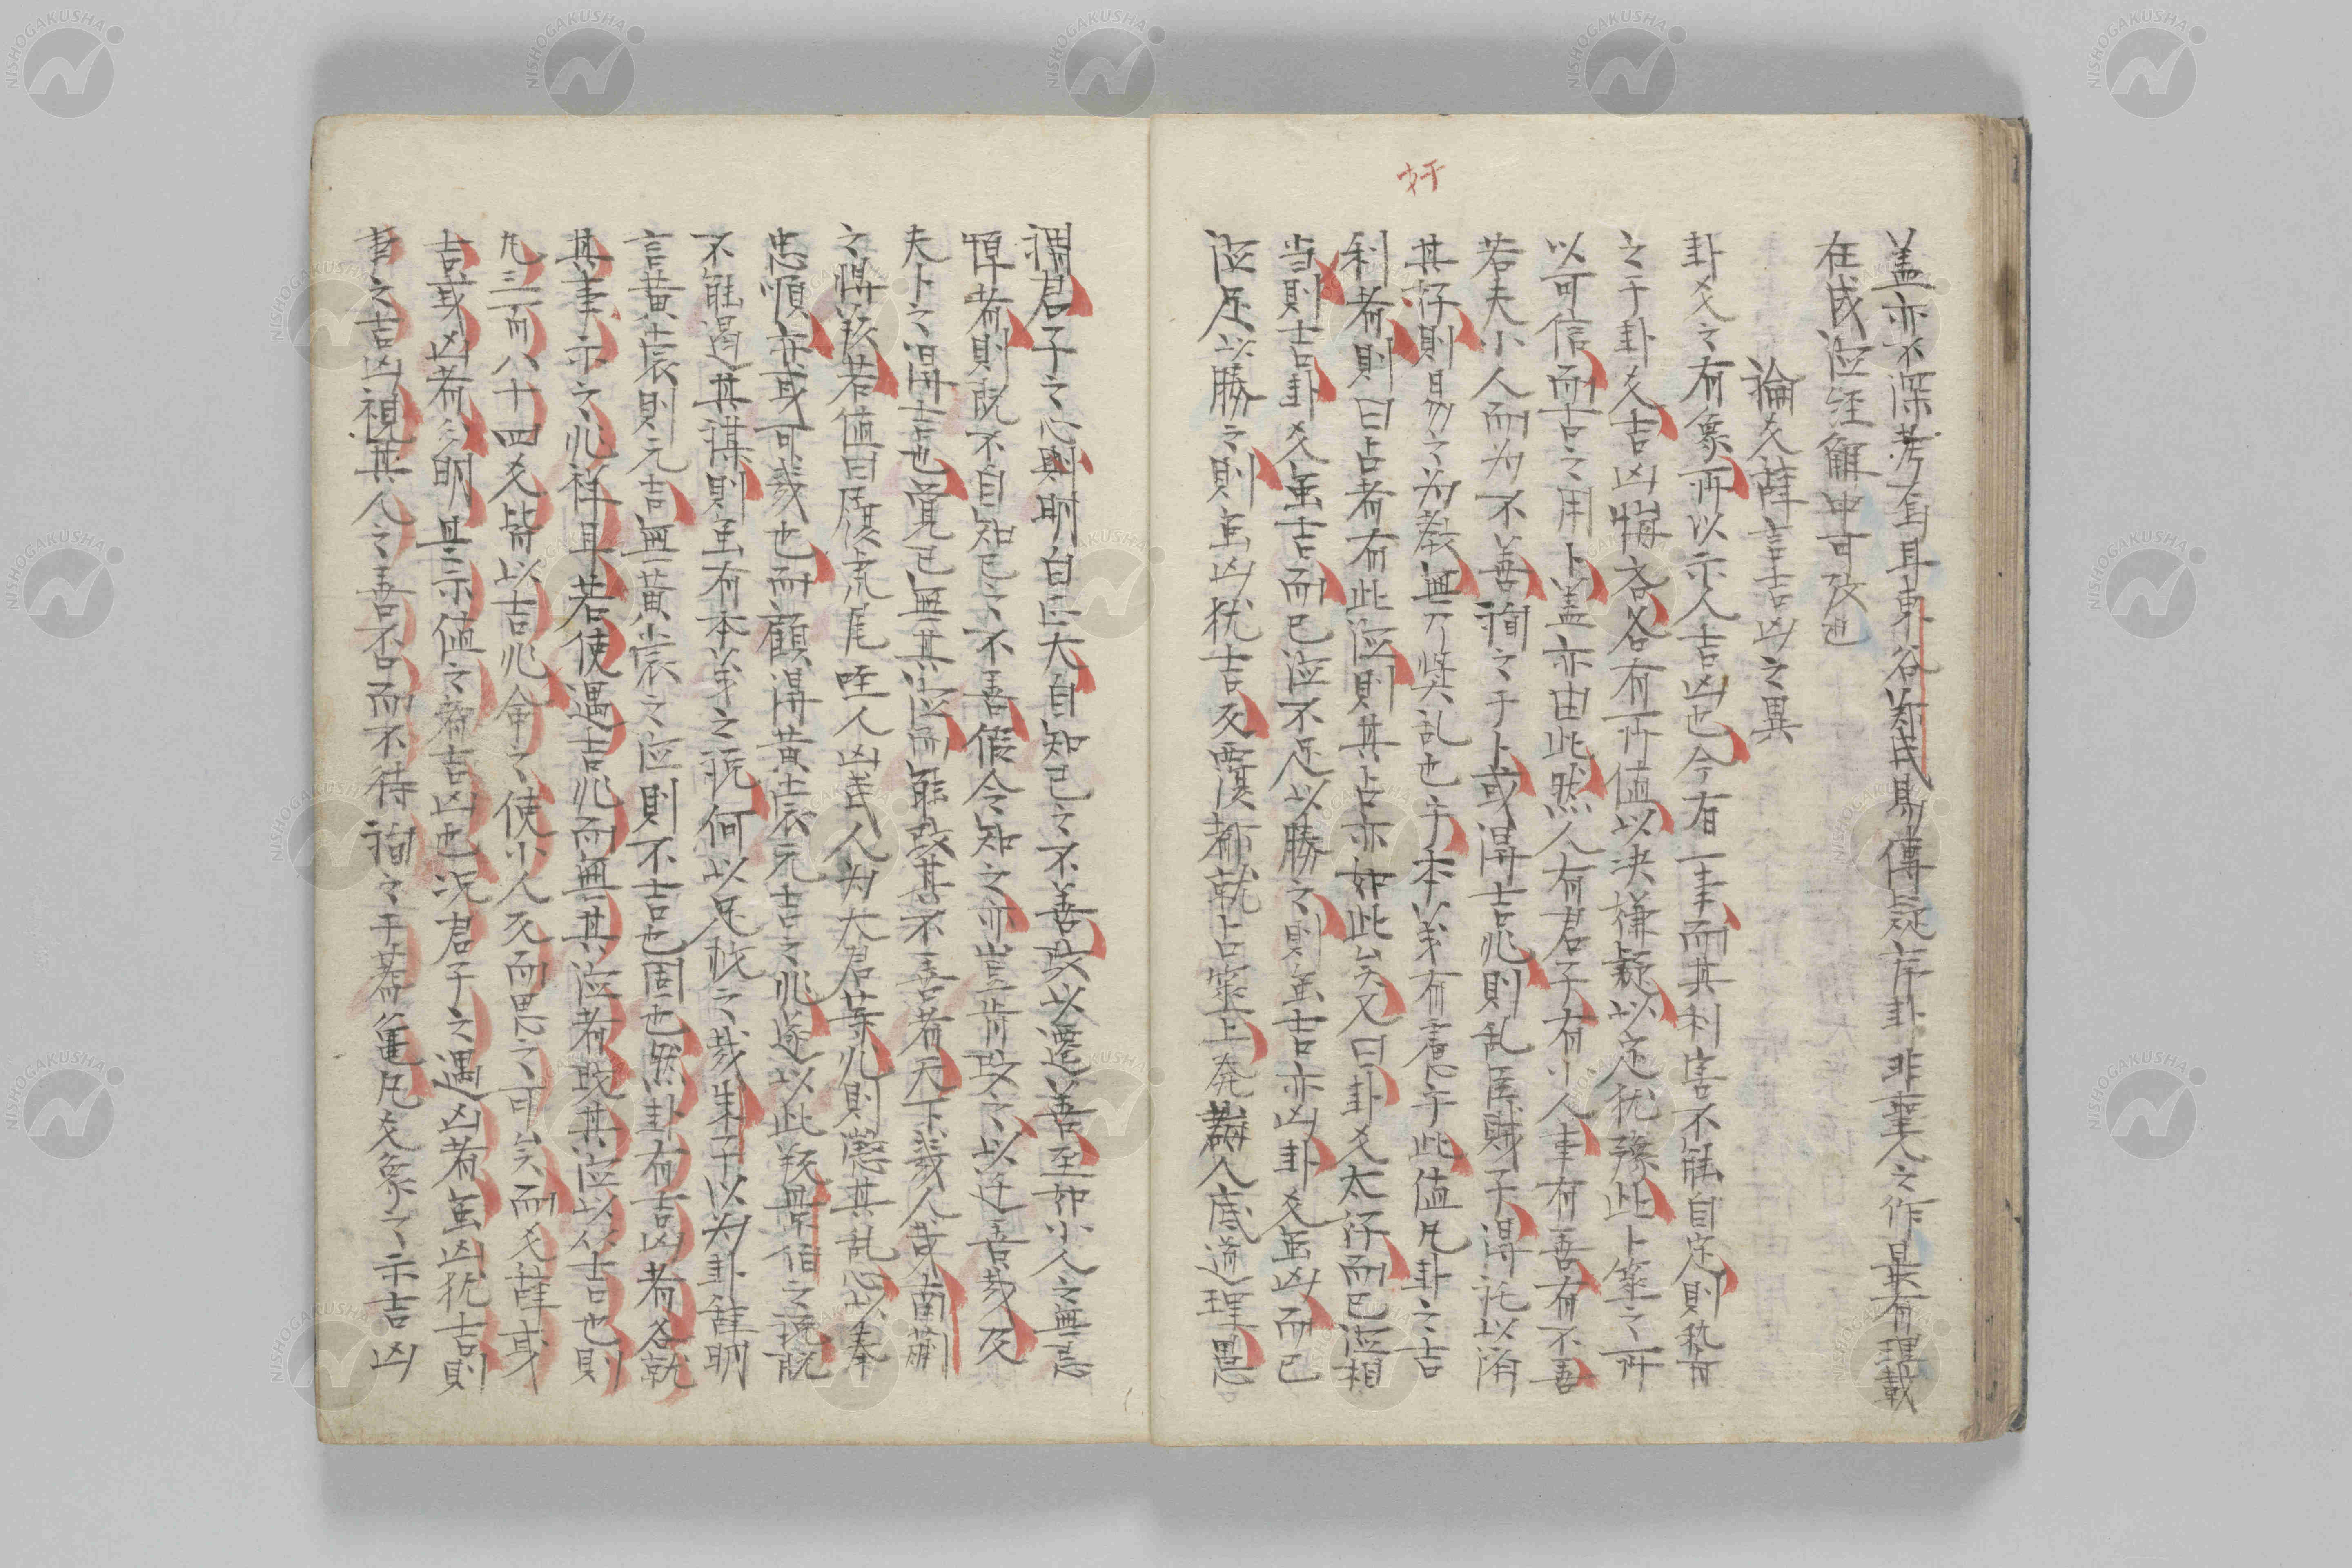 奸
盖亦不深考焉耳東谷鄭氏易傳疑序卦非聖人之作最有理載
在成泣経解中可攷也
論爻辞言吉凶之異
卦爻之有象所以示人吉凶也今有一事而其利害不能自定則稽
之于卦爻吉凶悔吝各有所値以决嫌疑以定犹豫此卜筮之所
以可信而吉之用卜盖亦由此然人有君子有小人事有善有不善
若夫小人而为不善詢之于卜或得吉兆則乱臣賊子得託以済
其奸則易之为教無乃奨乱也乎本义有意乎此値凡卦之吉
利者則曰占者有此泣則其占亦如此矣又曰卦爻太奸而已泣相
当則吉卦爻虽吉而已泣不足以勝之則虽吉亦凶卦爻虽凶而已
泣足以勝之則虽凶犹吉反覆都就占筮上発明人底道理愚
謂君子之心則明白正大自知己之不善改以遷善至如小人之無忌
惮者則既不自知己之不善假令知之亦豈肯改之以迁善哉及
夫卜之得吉也覚已無其泣而能改其不善者天下幾人哉南蒯
之得該若値曰履虎尾咥人凶武人为大君等兆則懲其乱心以奉
忠順亦或可幾也而顧得黄裳元吉之兆遂以此叛畢伯之説既
不能遏其謀則虽有本义之説何以足救之哉朱子以为卦辞明
言黄裳則元吉無黄裳之泣則不吉也固也然卦有吉凶者各就
其事示之兆祥耳若使遇吉兆而無其泣者改其泣以从吉也則
凡三百八十四爻皆以吉兆命之使小人反而思之可矣而爻辞或
吉或凶者分明且示値之者吉凶也况君子之遇凶者虽凶犹吉則
事之吉凶視其人之善不口而不待詢之于蓍亀凡爻象之示吉凶